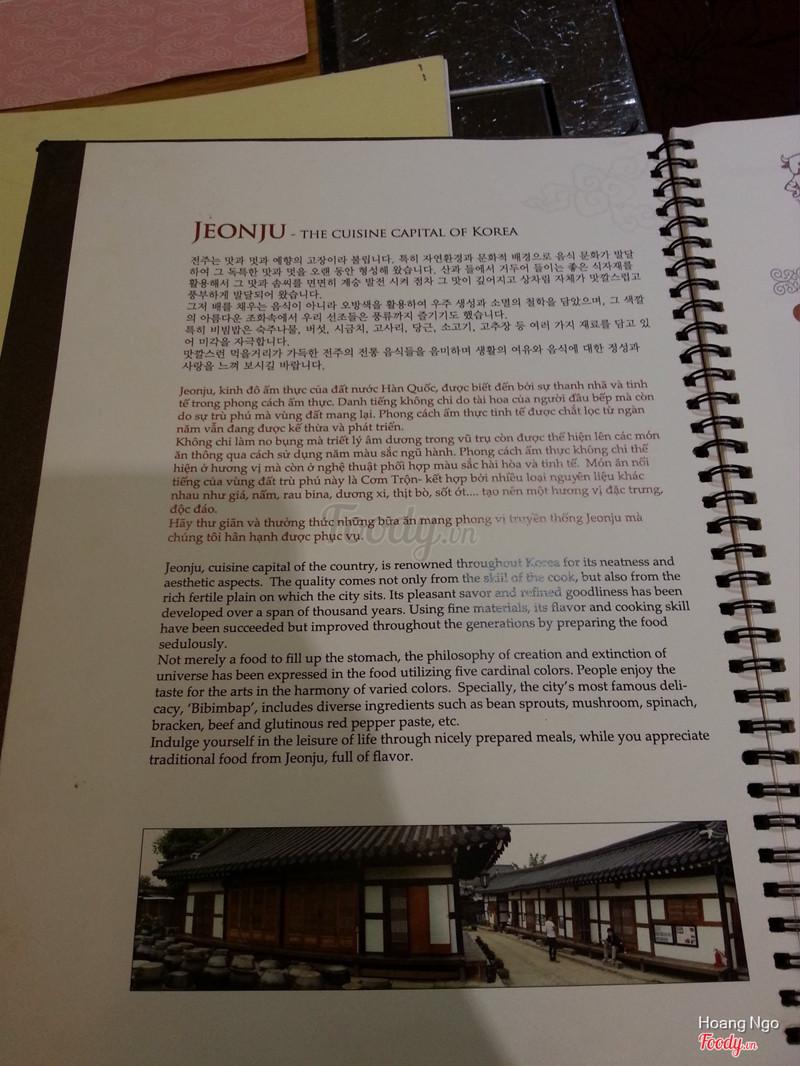 JEONJU - THE CUISINE CAPITAL OF KOREA
전주는 맛과 멋과 예향의 고장이라 불립니다. 특히 자연환경과 문화적 배경으로 음식 문화가 발달
하여 그 독특한 맛과 멋을 오랜 동안 형성해 왔습니다. 산과 들에서 거두어 들이는 좋은 식자재를
활용해서 그 맛과 솜씨를 면면히 계승 발전 시켜 점차 그 맛이 깊어지고 상차림 자체가 맛깔스럽고
풍부하게 발달되어 왔습니다.
그저 배를 채우는 음식이 아니라 오방색을 활용하여 우주 생성과 소멸의 철학을 담았으며, 그 색깔
의 아름다운 조화속에서 우리 선조들은 풍류까지 즐기기도 했습니다.
특히 비빔밥은 숙주나물, 버섯, 시금치, 고사리, 당근, 소고기, 고추장 등 여러 가지 재료를 담고 있
어 미각을 자극합니다.
맛깔스런 먹을거리가 가득한 전주의 전통 음식들을 음미하며 생활의 여유와 음식에 대한 정성과
사랑을 느껴 보시길 바랍니다.
Jeonju, kinh đô ẩm thực của đất nước Hàn Quốc, được biết đến bởi sự thanh nhã và tinh
tế trong phong cách ẩm thực. Danh tiếng không chỉ do tài hoa của người đầu bếp mà còn
do sự trù phú mà vùng đất mang lại. Phong cách ẩm thực tinh tế được chắt lọc từ ngàn
năm vẫn đang được kế thừa và phát triển.
Không chỉ làm no bụng mà triết lý âm dương trong vũ trụ còn được thể hiện lên các món
ăn thông qua cách sử dụng năm màu sắc ngũ hành. Phong cách ẩm thực không chỉ thể
hiện ở hương vị mà còn ở nghệ thuật phối hợp màu sắc hài hòa và tinh tế. Món ăn nổi
tiếng của vùng đất trù phú này là Cơm Trộn- kết hợp bởi nhiều loại nguyên liệu khác
nhau như giá, nấm, rau bina, dương xỉ, thịt bò, sốt ớt.... tạo nên một hương vị đặc trưng,
độc đáo.
Hãy thư giãn và thưởng thức những bữa ăn mang phong vị truyền thống Jeonju mà
chúng tôi hân hạnh được phục vụ.
Foody.vn
Jeonju, cuisine capital of the country, is renowned throughout Korea for its neatness and
aesthetic aspects. The quality comes not only from the skill of the cook, but also from the
rich fertile plain on which the city sits. Its pleasant savor and refined goodliness has been
developed over a span of thousand years. Using fine materials, its flavor and cooking skill
have been succeeded but improved throughout the generations by preparing the food
sedulously.
Not merely a food to fill up the stomach, the philosophy of creation and extinction of
universe has been expressed in the food utilizing five cardinal colors. People enjoy the
taste for the arts in the harmony of varied colors. Specially, the city's most famous deli-
cacy, 'Bibimbap', includes diverse ingredients such as bean sprouts, mushroom, spinach,
bracken, beef and glutinous red pepper paste, etc.
Indulge yourself in the leisure of life through nicely prepared meals, while you appreciate
traditional food from Jeonju, full of flavor.
Hoang Ngo
Foody.vn